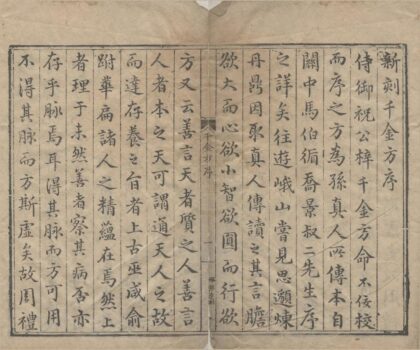 新刻千金方序
侍御祝公梓千金方命不佞校
而序之方為孫真人所傳本自
關中馬伯循喬景叔二先生序
之詳矣往遊峨山嘗見思邈煉
丹鼎因取真人傳讀之其言膽
欲大而心欲小智欲圓而行欲
千金方序
方又云善言天者質之人善言
人者本之天可謂通天人之故
而達存養之旨者上古巫咸俞
跗華扁諸人之精蘊在焉然上
者理于未然善者察其病否亦
存乎脉焉耳得其脉而方可用
不得其脉而方斯虛矣故周禮